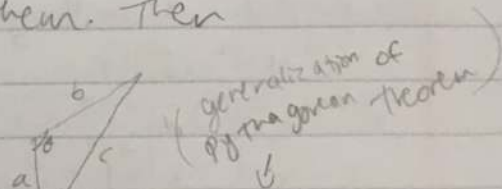 them. Then
(generalization of
Pythagorean theorem)
b
θ
c
a